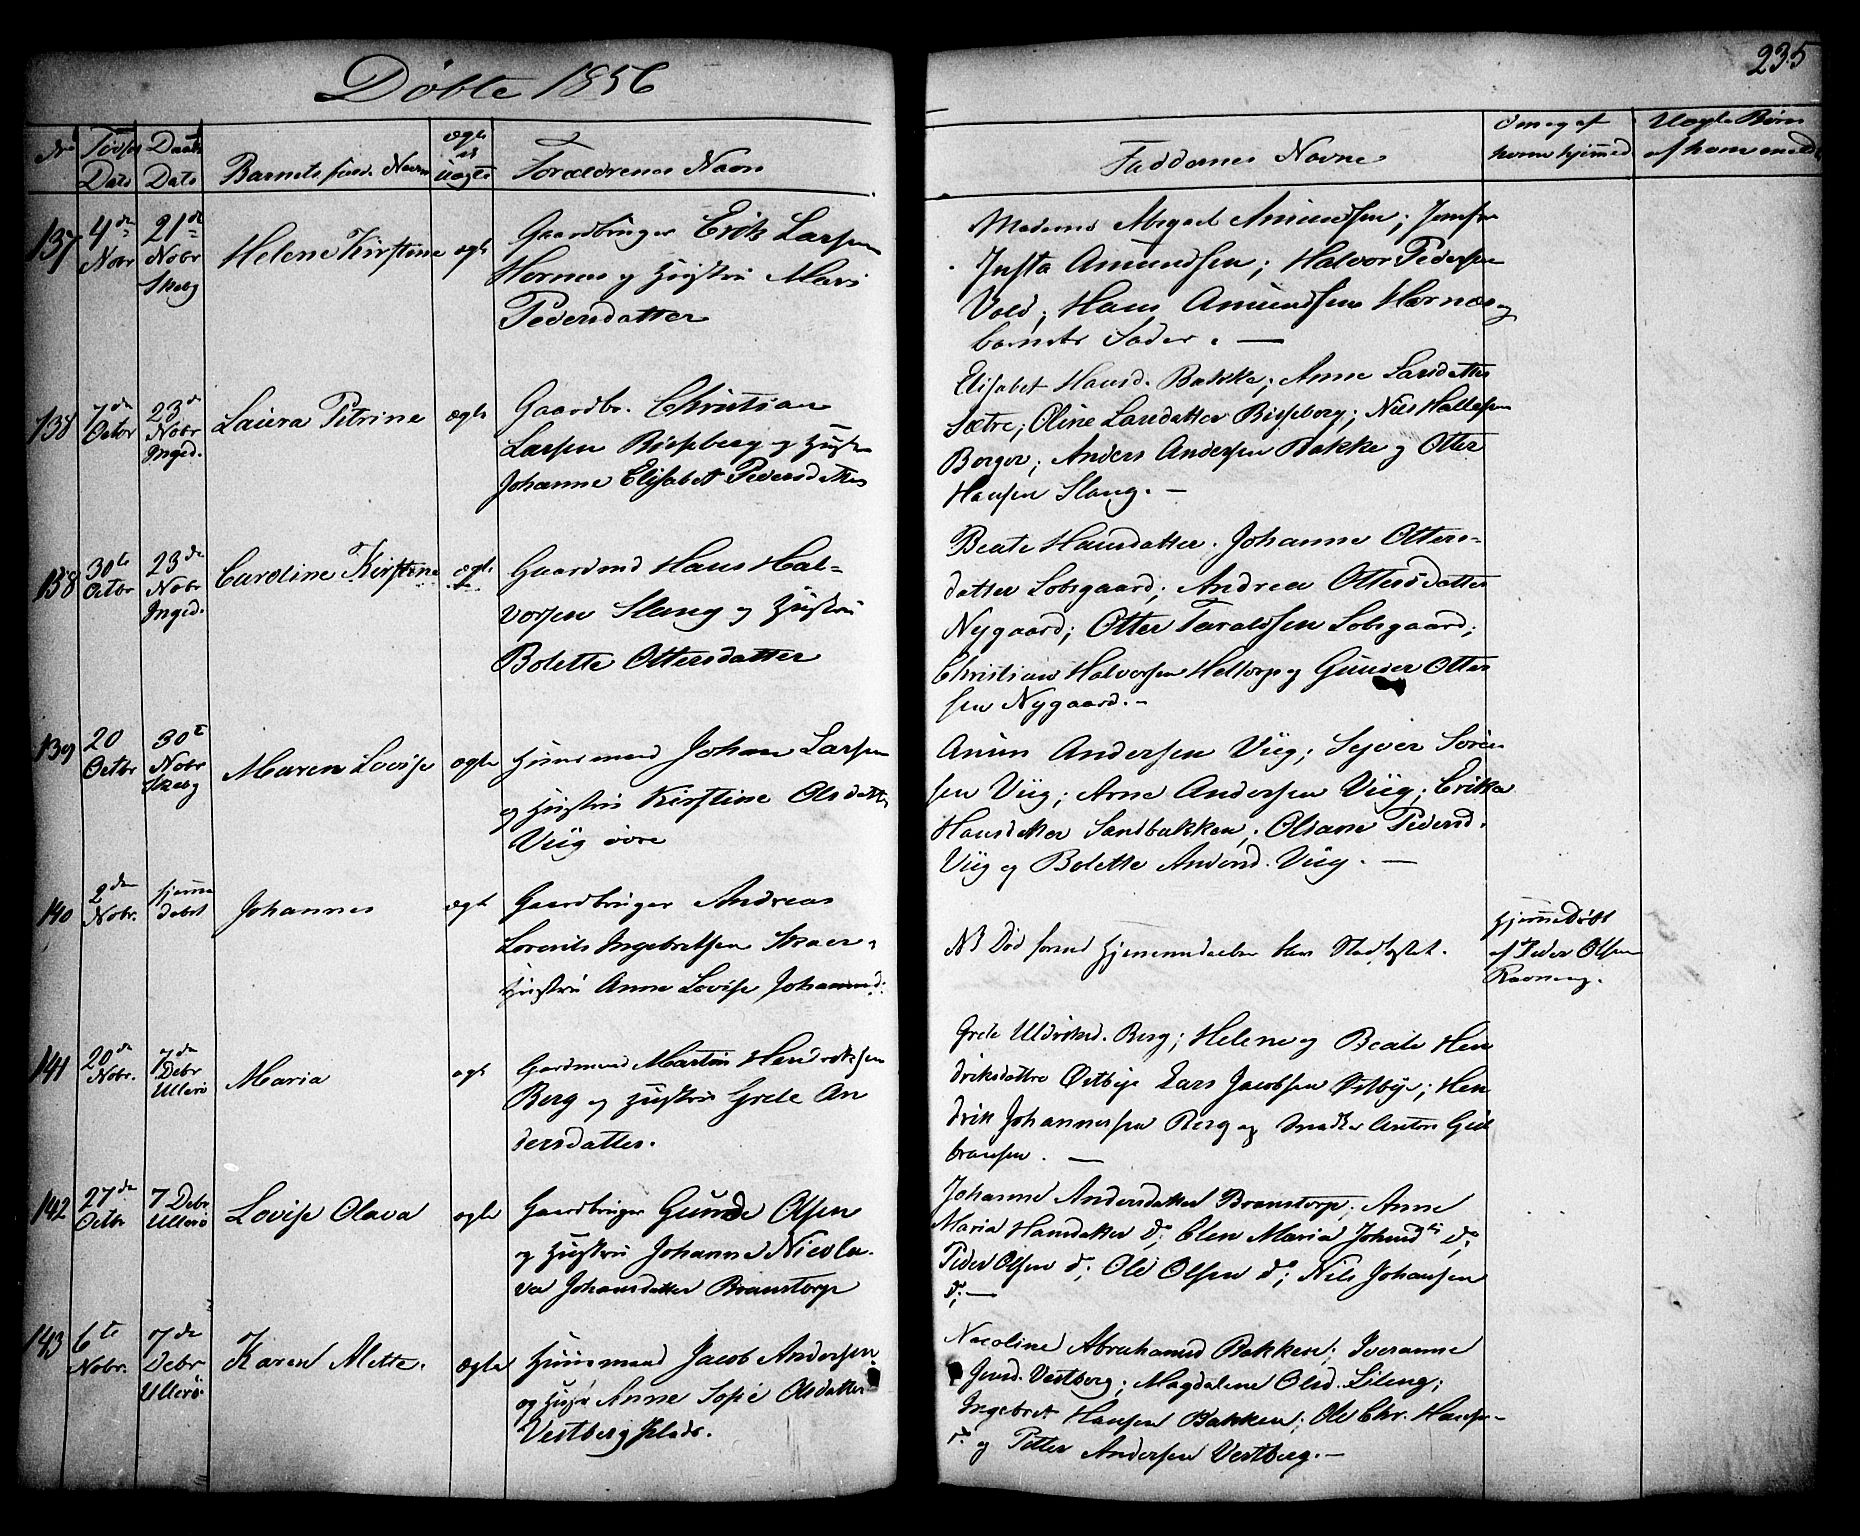 Døbte 1856
235
No
Fødsels Dato
Daabs Dato
Barnets fulde Navn
ægte el uægte
Forældrenes Navn
Faddernes Navne
Om og af hvem hjemmed
Uægte Børn af hvem anmeldt
137
4de Novr
21de Novr Skeby
Helene Kirstine
ægte
Gaardbruger Erik Larsen
Hornes og Hustru Mari
Pedersdatter
Madame Abigael Amundsen; Jomfru
Justa Amundsen; Halvor Pedersen
Vold; Hans Amundsen Hornes og
barnets Fader. —
138
7de Octbr
23de Novbr Inged.
Laura Petrine
ægte
Gaardbr. Christian
Larsen Bisseberg og Hustr
Johanne Elisabet Pedersdatter
Elisabet Hansd. Bakke; Anne Larsdatter
Sætre; Oline Larsdatter Bisseberg; Niels Hallesen
Borger; Anders Andersen Bakke og Otter
Hansen Slang. —
138
30te Octbr
23de Novbr Inged.
Caroline Kirstine
ægte
Gaardmd Hans Hal-
vorsen Slang og Hustru
Bolette Ottersdatter
Beate Hansdatter. Johanne Otters-
datter Lobsgaard; Andrea Ottersdatter
Nygaard; Otter Taraldsen Lobsgaard;
Christian Halvorsen Heltorp og Gunder Otter
sen Nygaard. —
139
20 Octbr
30te Novbr Skeby
Maren Lovise
ægte
Huusmand Johan Larsen
og Hustru Kirstine Olsdatter
Viig øvre
Andersen Viig; Syver Søren
sen Viig; Arne Andersen Viig; Erika
Hansdatter Sandbakken; Olsane Pedersd.
Viig og Bolette Amund. Viig. —
140
2den Novbr.
hjemme døbt
Johannes
ægte
Gaardbruger Andreas
Lorents Ingebretsen
Hustru Anne Lovise Johannesd:
NB Død forend Hjemmedaaben blev Stadfæstet.
Hjemmedøbt
af Peder Olsen
141
20de Novbr.
7de Debr Ullerø
Maria
ægt
Gardmand Martin Hendriksen
Berg og Hustru Grete An
dersdatter.
Grete Berg; Helene og Beate Hen
driksdøttre Østbye Lars Jacobsen Østbye; Hen
drik Johannessen Berg og Anton Gul
bransen. —
142
27de Octbr
7 Debr Ullerø
Lovise Olava
ægte
Gaardbruger Gunder Olsen
og Hustru Johanne Nicola.
va Johansdatter Branstorp
Johanne Andersdatter Branstorp; Anne
Maria Hansdatter do; Elen Maria do;
Peder Olsen do; Ole Olsen do; Nils Johansen
do; —
143
6te Novbr.
7de Debr Ullerø
Karen Mette.
ægte
Huusmand Jacob Andersen
og Hustr Anne Sofie Olsdatter
Vestberg Plads.
Nicoline Abrahamsd Bakken; Iveranne
Jensd. Vestberg; Magdalene Olsd. Lileng;
Ingebret Hansen Bakken; Ole Chr. Hansen
do og Petter Andersen Vestberg. —